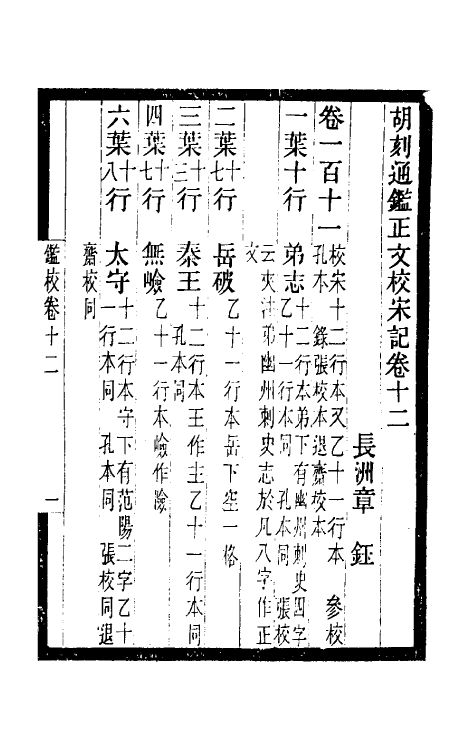 胡刻通鑑正文校宋記卷十二
長洲章　鈺
卷一百十一　校宋十二行本又乙十一行本　參校
孔本　錄張校本退齋校本
一葉十行　弟志　十二行本弟下有幽州刺史四字
乙十一行本同　孔本同　張校
云夾注弟幽州刺史志於凡八字作正
文
二葉十七行　岳破　乙十一行本岳下空一格
三葉十三行　秦王　十二行本王作主乙十一行本同
孔本同
四葉十七行　無嶮　乙十一行本嶮作險
六葉十八行　太守　十二行本守下有范陽二字乙十
一行本同　孔本同　張校同退
齋校同
鑑校卷十二　一